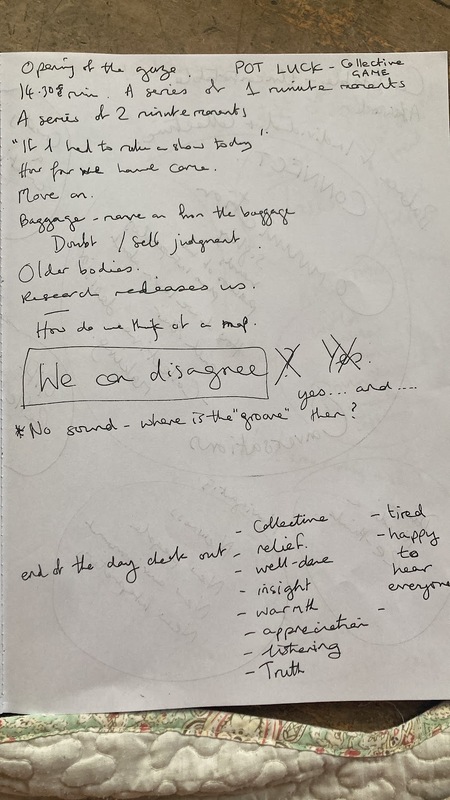 Opening of the gaze. POT LUCK - Collective GAME
14.30 min. A series of 1 minute moments
A series of 2 minute moments
"If I had to make a show today".
How far we have come.
Move on.
Baggage - move on from the baggage
Doubt / self judgment.
Older bodies.
Research releases us.
How do we think of a map.
We can disagree X Yes.
yes... and....
*No sound - where is the "groove" then?
end of the day check out
- Collective
- relief.
- well-done
- insight
- warmth
- appreciation
- listening
- Truth
- tired
- happy to hear everyone
-